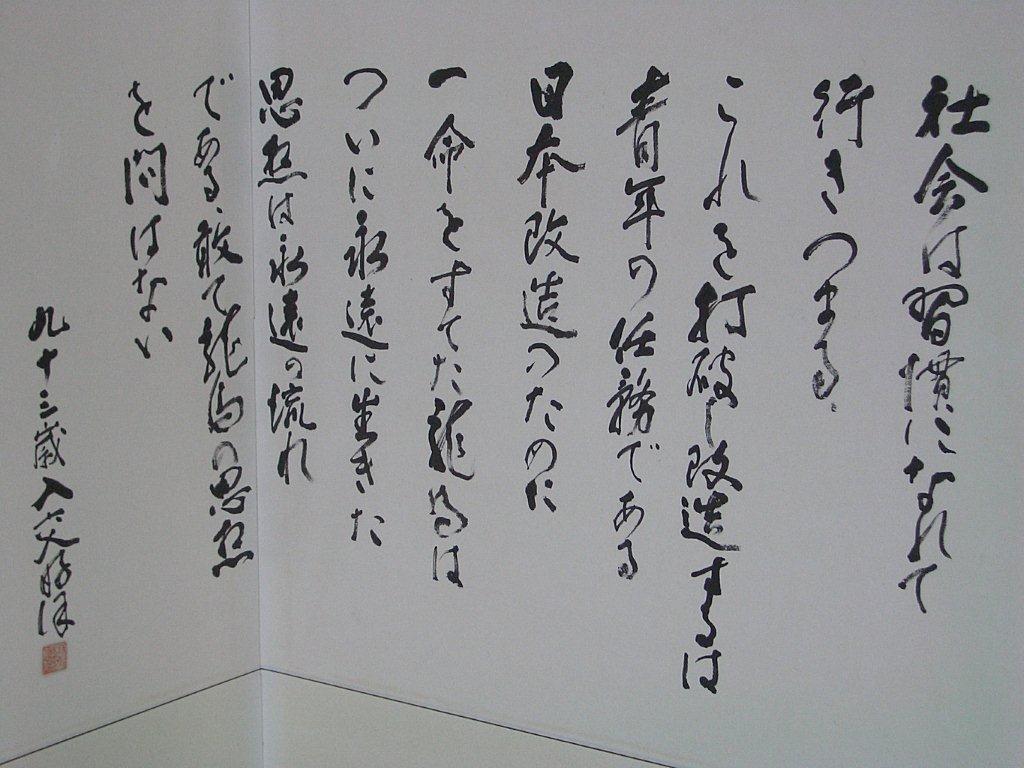 社会は習慣になれて
行きつまる、
これを打破し改造するは
青年の任務である
日本改造のために
一命をすてた龍馬は
ついに永遠に生きた
思想は永遠の流れ
である、敢て龍馬の思想
を問はない
九十三歳 入交好保